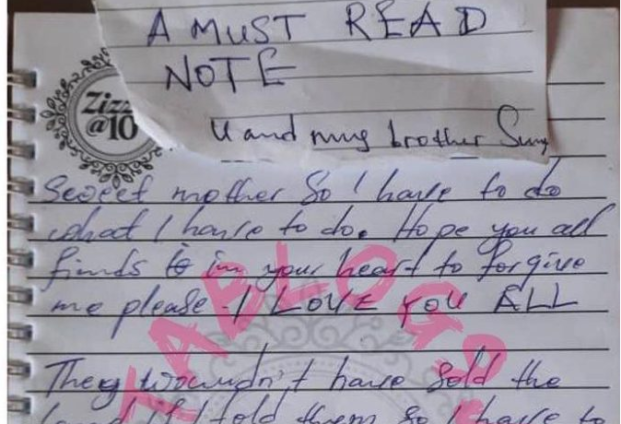 A MUST READ
NOTE
U and mug brother Sunny
Zizz
@10
Sweet mother So I have to do
what I have to do. Hope you all
finds it in your heart to forgive
me please. I LOVE YOU ALL
TABLOGS
They wouwldn't have sold the
land if I told them so I have to